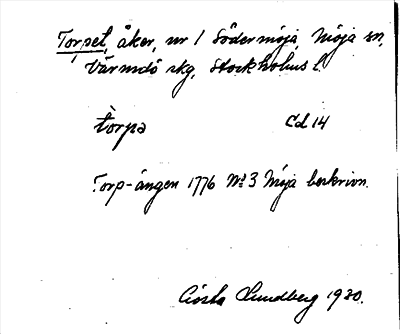 Torpet, åker, nr 1 Södermöja, Möja sn,
Värmdö skg, Stockholms l.
tòrpə Cd 14
Torp-ängen 1776 No 3 Möja beskrivn.
Gösta Lundberg 1930.